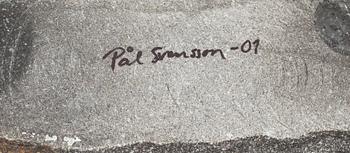 Pål Svensson -01